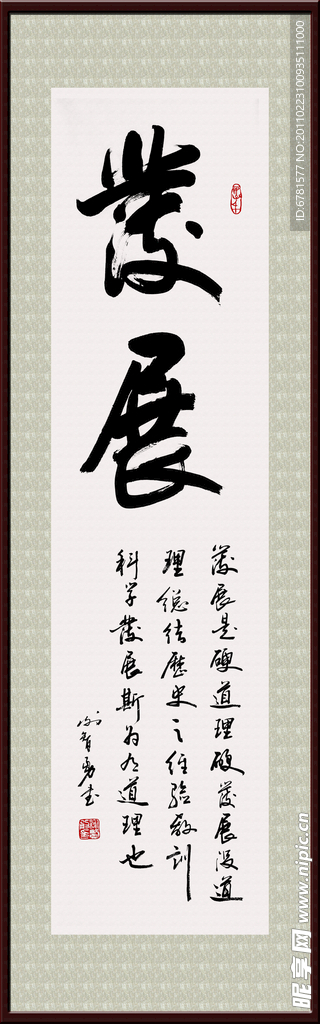 發展
發展是硬道理硬發展没道
理總结歷史之经验教训
科学發展斯为有道理也
ID:6781577 NO:20110223100935111000
昵享网 www.nipic.cn